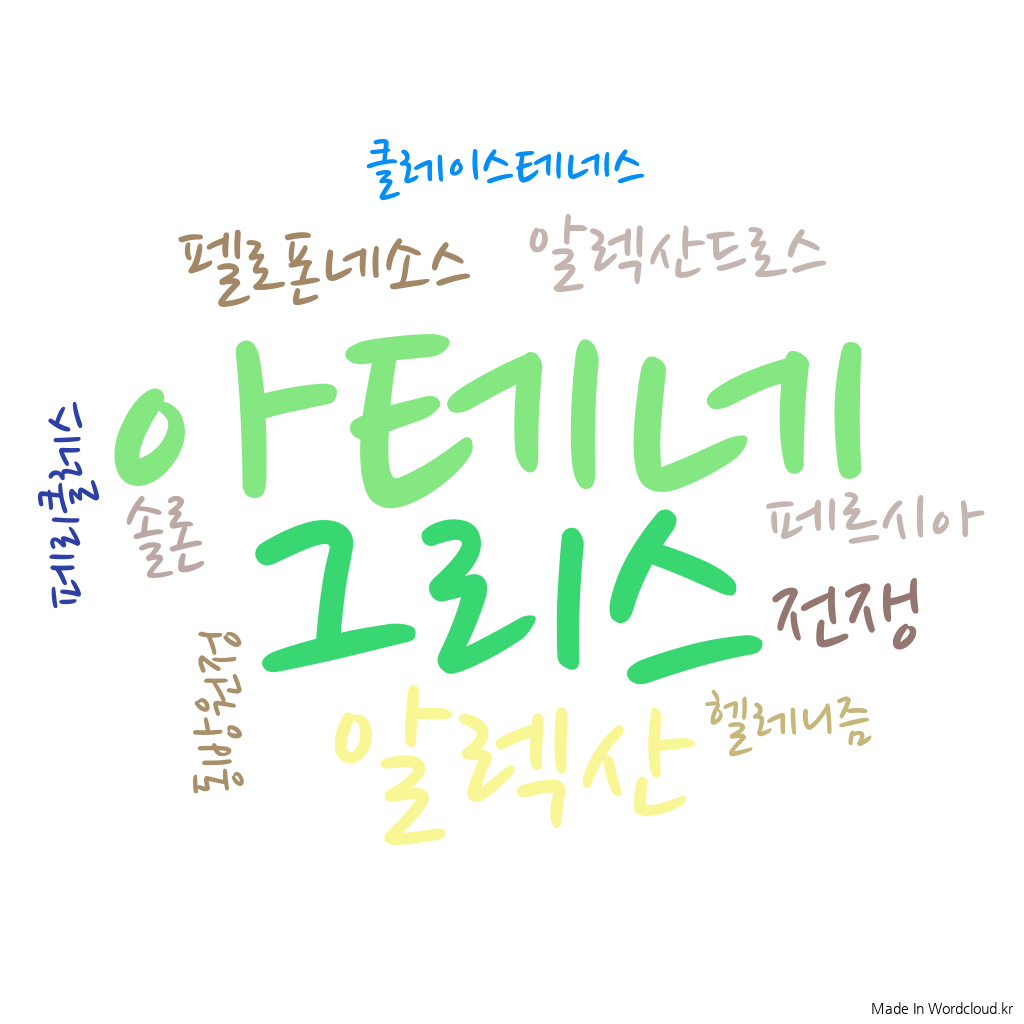 클레이스테네스
펠로폰네소스
알렉산드로스
아테네
페리클레스
솔론
그리스
페르시아
전쟁
동방원정
알렉산
헬레니즘
Made In Wordcloud.kr